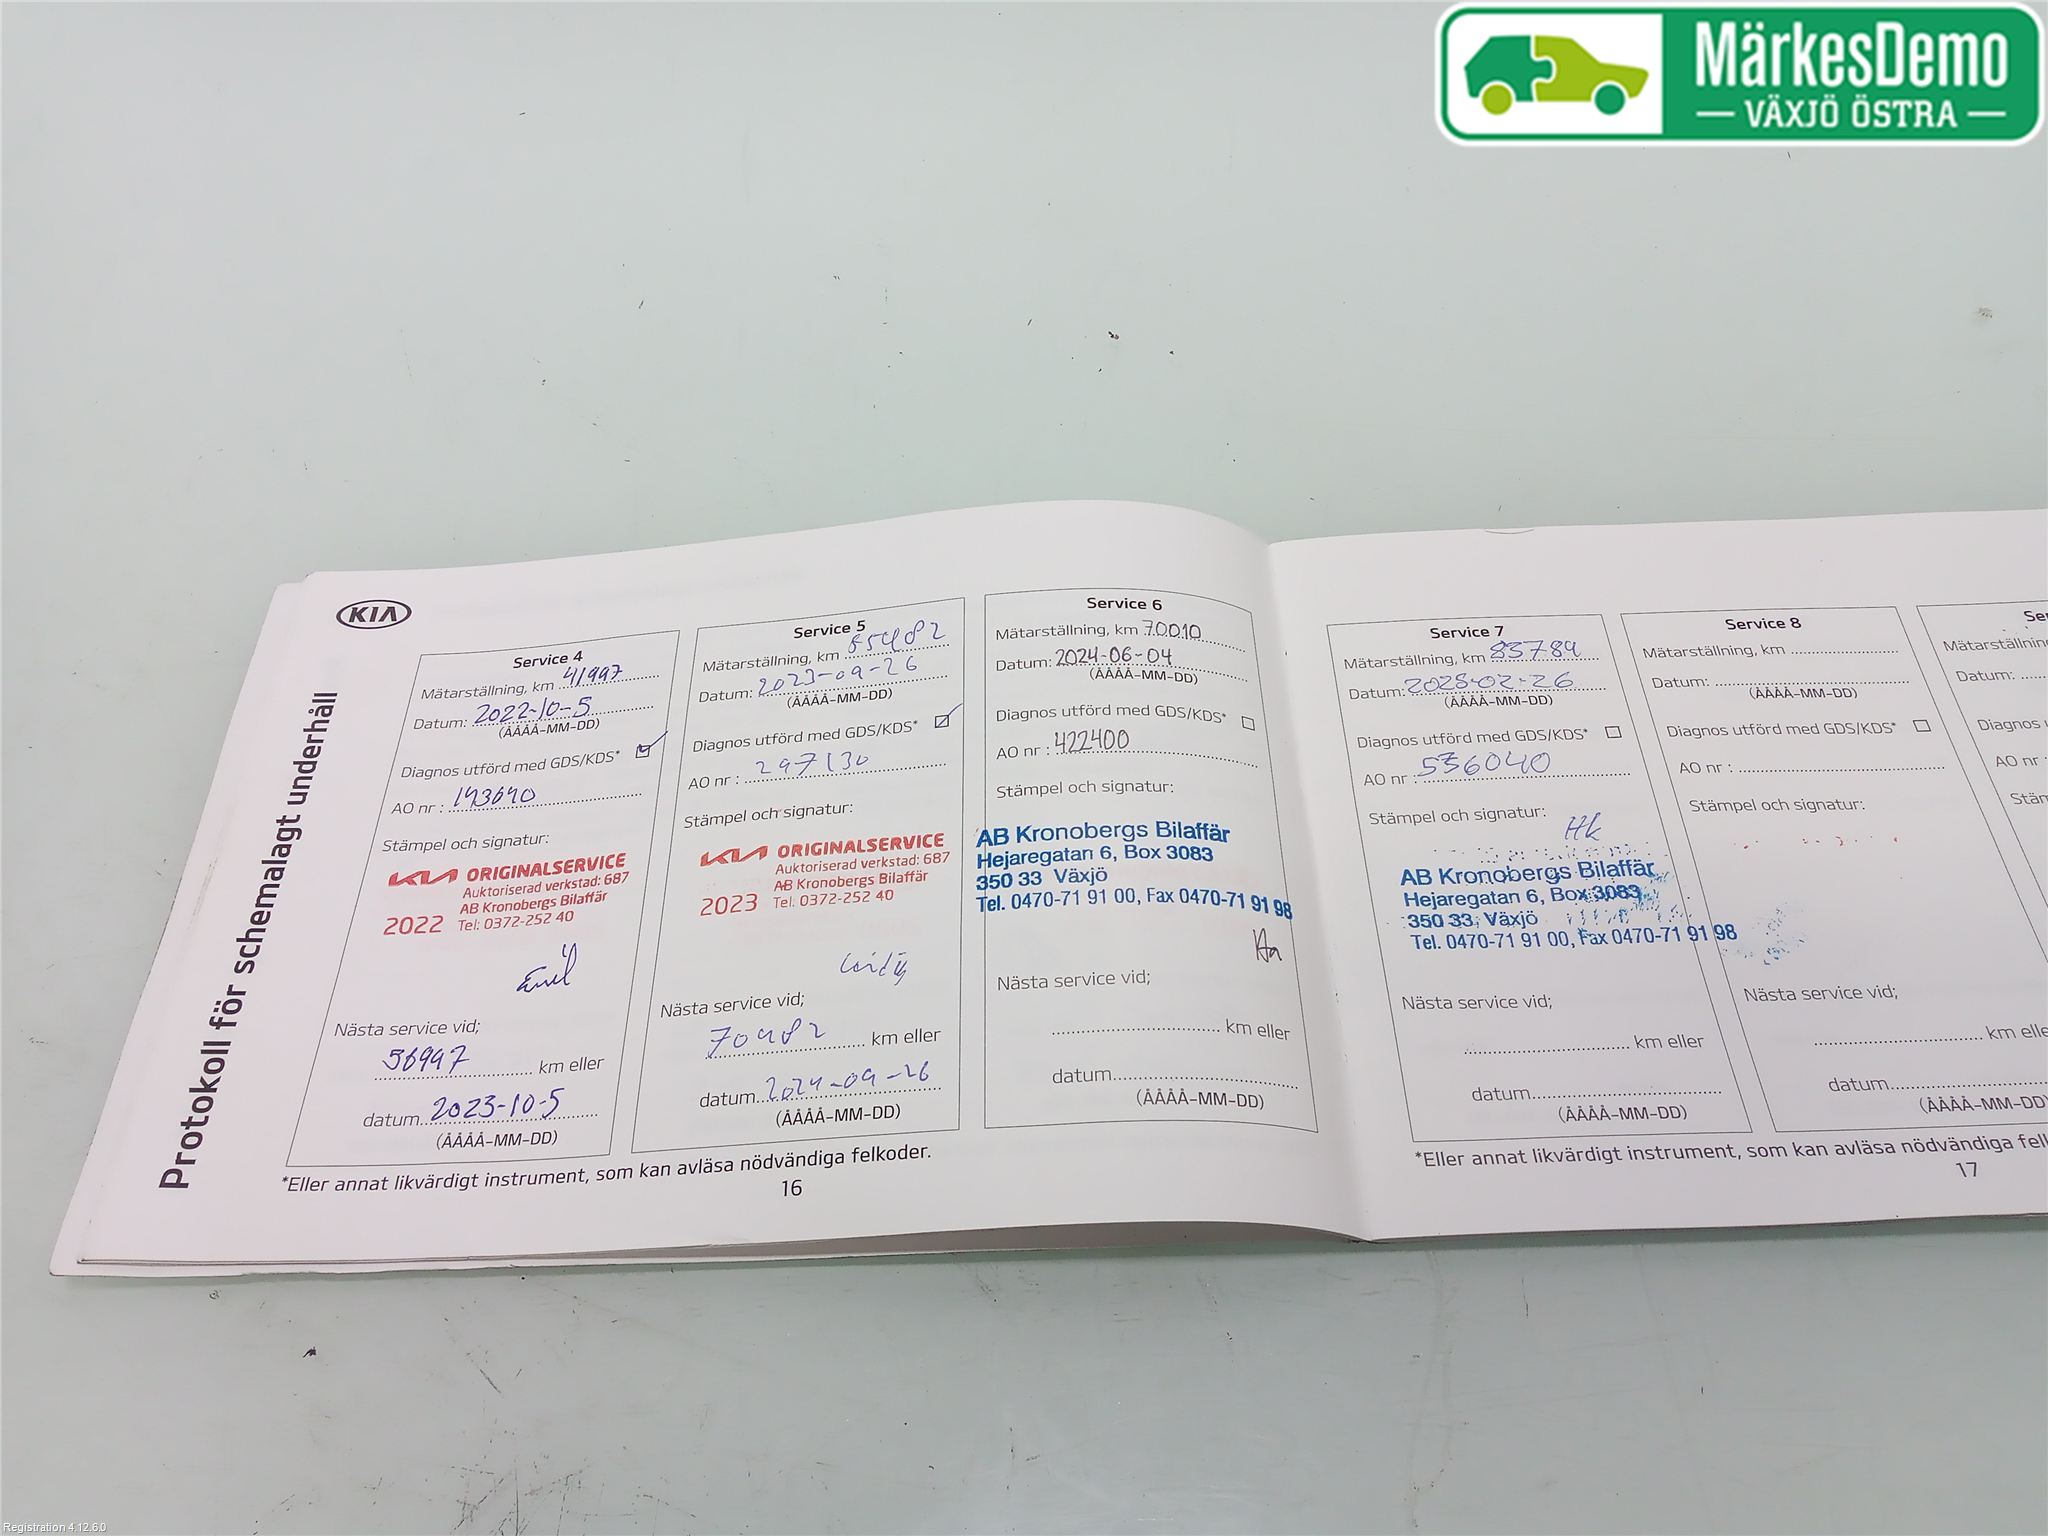 MärkesDemo
— VÄXJÖ ÖSTRA —
KIA
Protokoll för schemalagt underhåll
Service 4
Mätarställning, km 41997
Datum: 2022-10-5
(ÅÅÅÅ-MM-DD)
Diagnos utförd med GDS/KDS*
AO nr : 143640
Stämpel och signatur:
KIA ORIGINALSERVICE
Auktoriserad verkstad: 687
AB Kronobergs Bilaffär
2022 Tel: 0372-252 40
Emil
Nästa service vid;
56997 km eller
datum 2023-10-5
(ÅÅÅÅ-MM-DD)
Service 5
Mätarställning, km 55482
Datum: 2023-09-26
(ÅÅÅÅ-MM-DD)
Diagnos utförd med GDS/KDS*
AO nr : 297130
Stämpel och signatur:
KIA ORIGINALSERVICE
Auktoriserad verkstad: 687
AB Kronobergs Bilaffär
2023 Tel: 0372-252 40
Nästa service vid;
70482 km eller
datum 2024-09-26
(ÅÅÅÅ-MM-DD)
Service 6
Mätarställning, km 70010
Datum: 2024-06-04
(ÅÅÅÅ-MM-DD)
Diagnos utförd med GDS/KDS*
AO nr : 422400
Stämpel och signatur:
AB Kronobergs Bilaffär
Hejaregatan 6, Box 3083
350 33 Växjö
Tel. 0470-71 91 00, Fax 0470-71 91 98
Nästa service vid;
km eller
datum
(ÅÅÅÅ-MM-DD)
*Eller annat likvärdigt instrument, som kan avläsa nödvändiga felkoder.
16
Service 7
Mätarställning, km 83789
Datum: 2025-02-26
(ÅÅÅÅ-MM-DD)
Diagnos utförd med GDS/KDS*
AO nr : 536040
Stämpel och signatur:
HK
AB Kronobergs Bilaffär
Hejaregatan 6, Box 3083
350 33 Växjö
Tel. 0470-71 91 00, Fax 0470-71 91 98
Nästa service vid;
km eller
datum
(ÅÅÅÅ-MM-DD)
Service 8
Mätarställning, km
Datum:
(ÅÅÅÅ-MM-DD)
Diagnos utförd med GDS/KDS*
AO nr :
Stämpel och signatur:
Nästa service vid;
km elle
datum
(ÅÅÅÅ-MM-DD)
Ser
Mätarställning
Datum:
Diagnos u
AO nr
Stäm
*Eller annat likvärdigt instrument, som kan avläsa nödvändiga felk
17
Registration 4.12.6.0